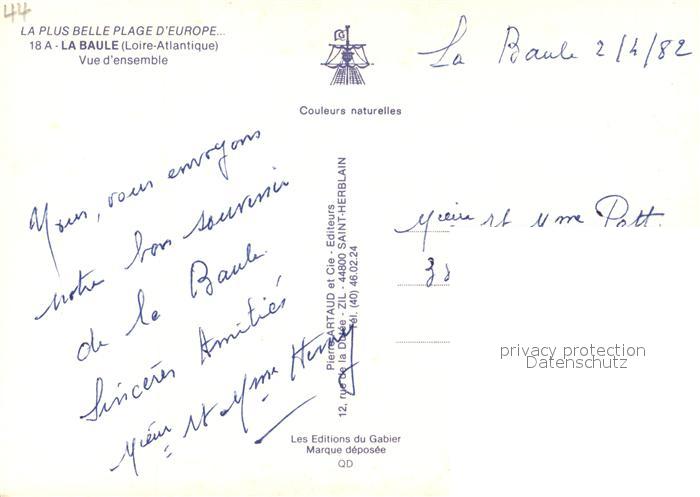 44
LA PLUS BELLE PLAGE D'EUROPE...
18 A - LA BAULE (Loire-Atlantique)
Vue d'ensemble
Couleurs naturelles
La Baule 2/4/82
Nous, vous envoyons
notre bon souvenir
de la Baule.
Sincères Amitiés
Mieur et Mme Henry
Pierre ARTAUD et Cie - Editeurs
12, rue de la Dutée - ZIL - 44800 SAINT-HERBLAIN
Tél. (40) 46.02.24
Mieur et Mme Pott.
38
privacy protection
Datenschutz
Les Editions du Gabier
Marque déposée
QD